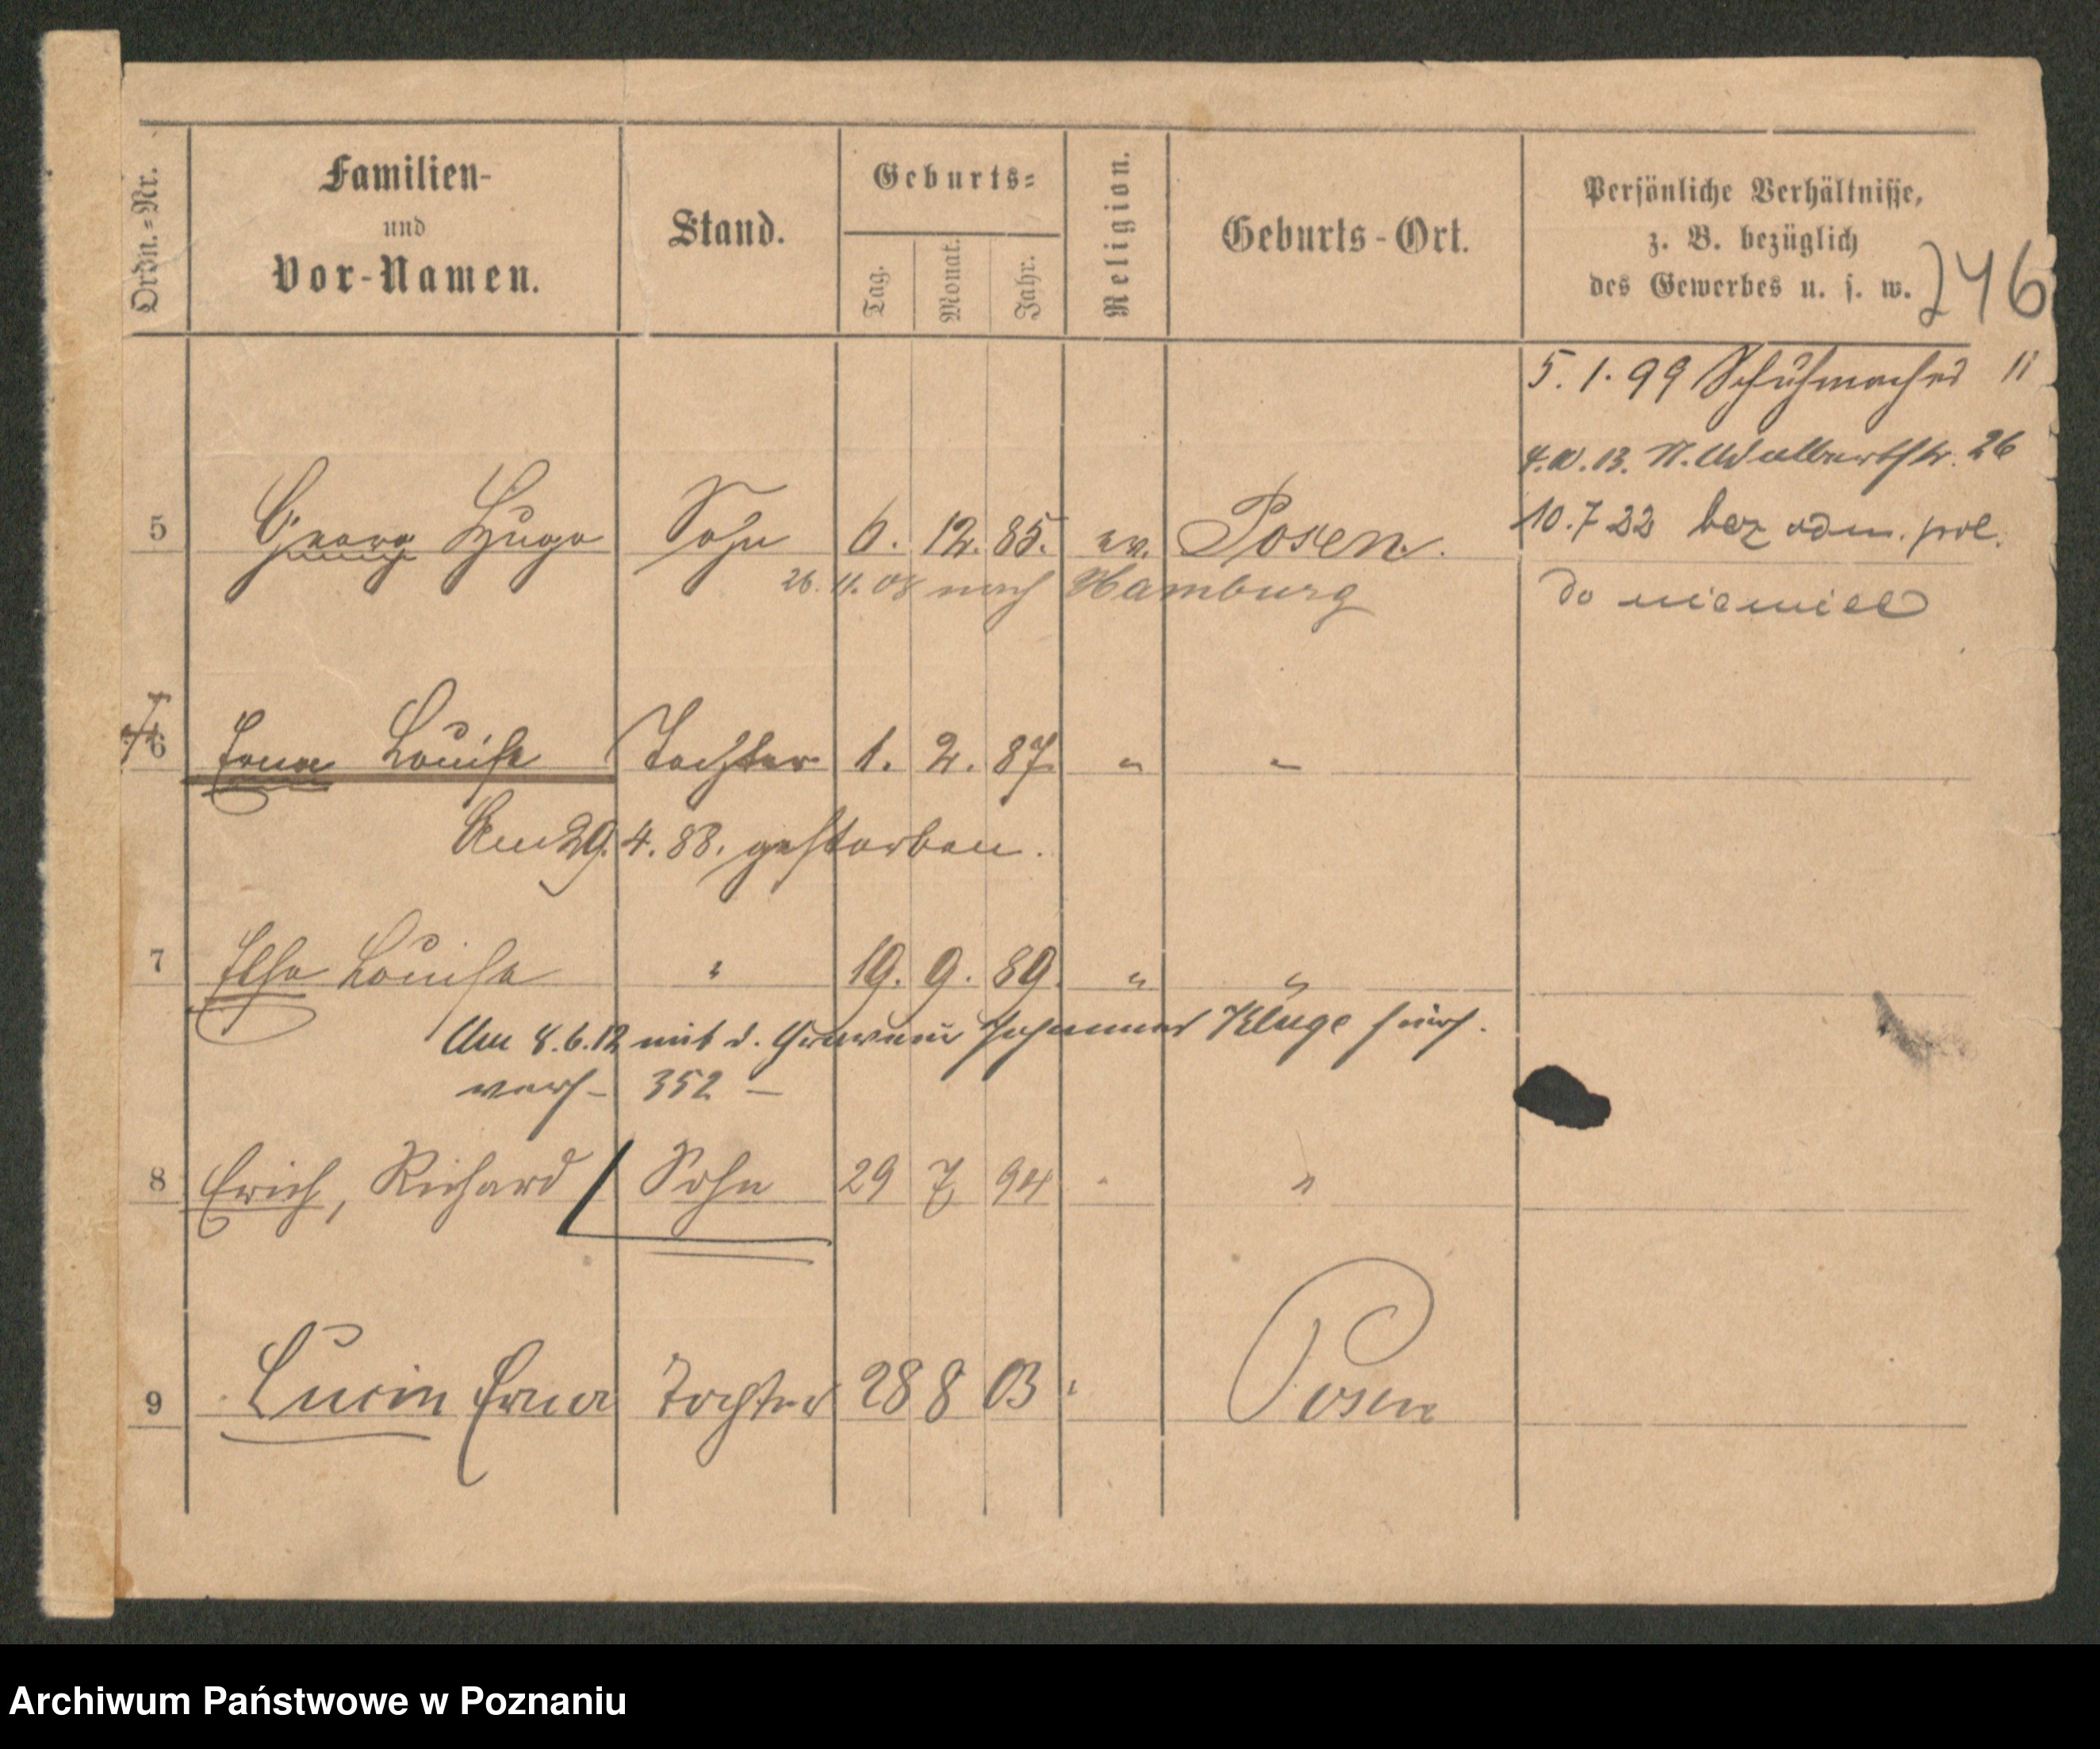 Ordn.=Nr.
Familien-
und
Vor-Namen.
Stand.
Geburts=
Tag.
Monat.
Jahr.
Religion.
Geburts-Ort.
Persönliche Verhältnisse,
z. B. bezüglich
des Gewerbes u. s. w.
246
5.1.99 Schuhmacher 11
4.10.13. N. Adalbertstr. 26
10.7 22 bez adm. pol.
do niemiec
5 Georg Hugo Sohn 6. 12. 85. ev. Posen.
26.11.08 nach Hamburg
6 Erna Louise Tochter 1. 2. 87 " "
Am 29.4.88. gestorben.
7 Else Louise " 19. 9. 89. " "
Am 8.6.12 mit d. Graveur Johannes Kluge hier
verh- 352 -
8 Erich, Richard Sohn 29 7 94 " "
9 Lucie Erna Tochter 28 8 03 " Posen
Archiwum Państwowe w Poznaniu